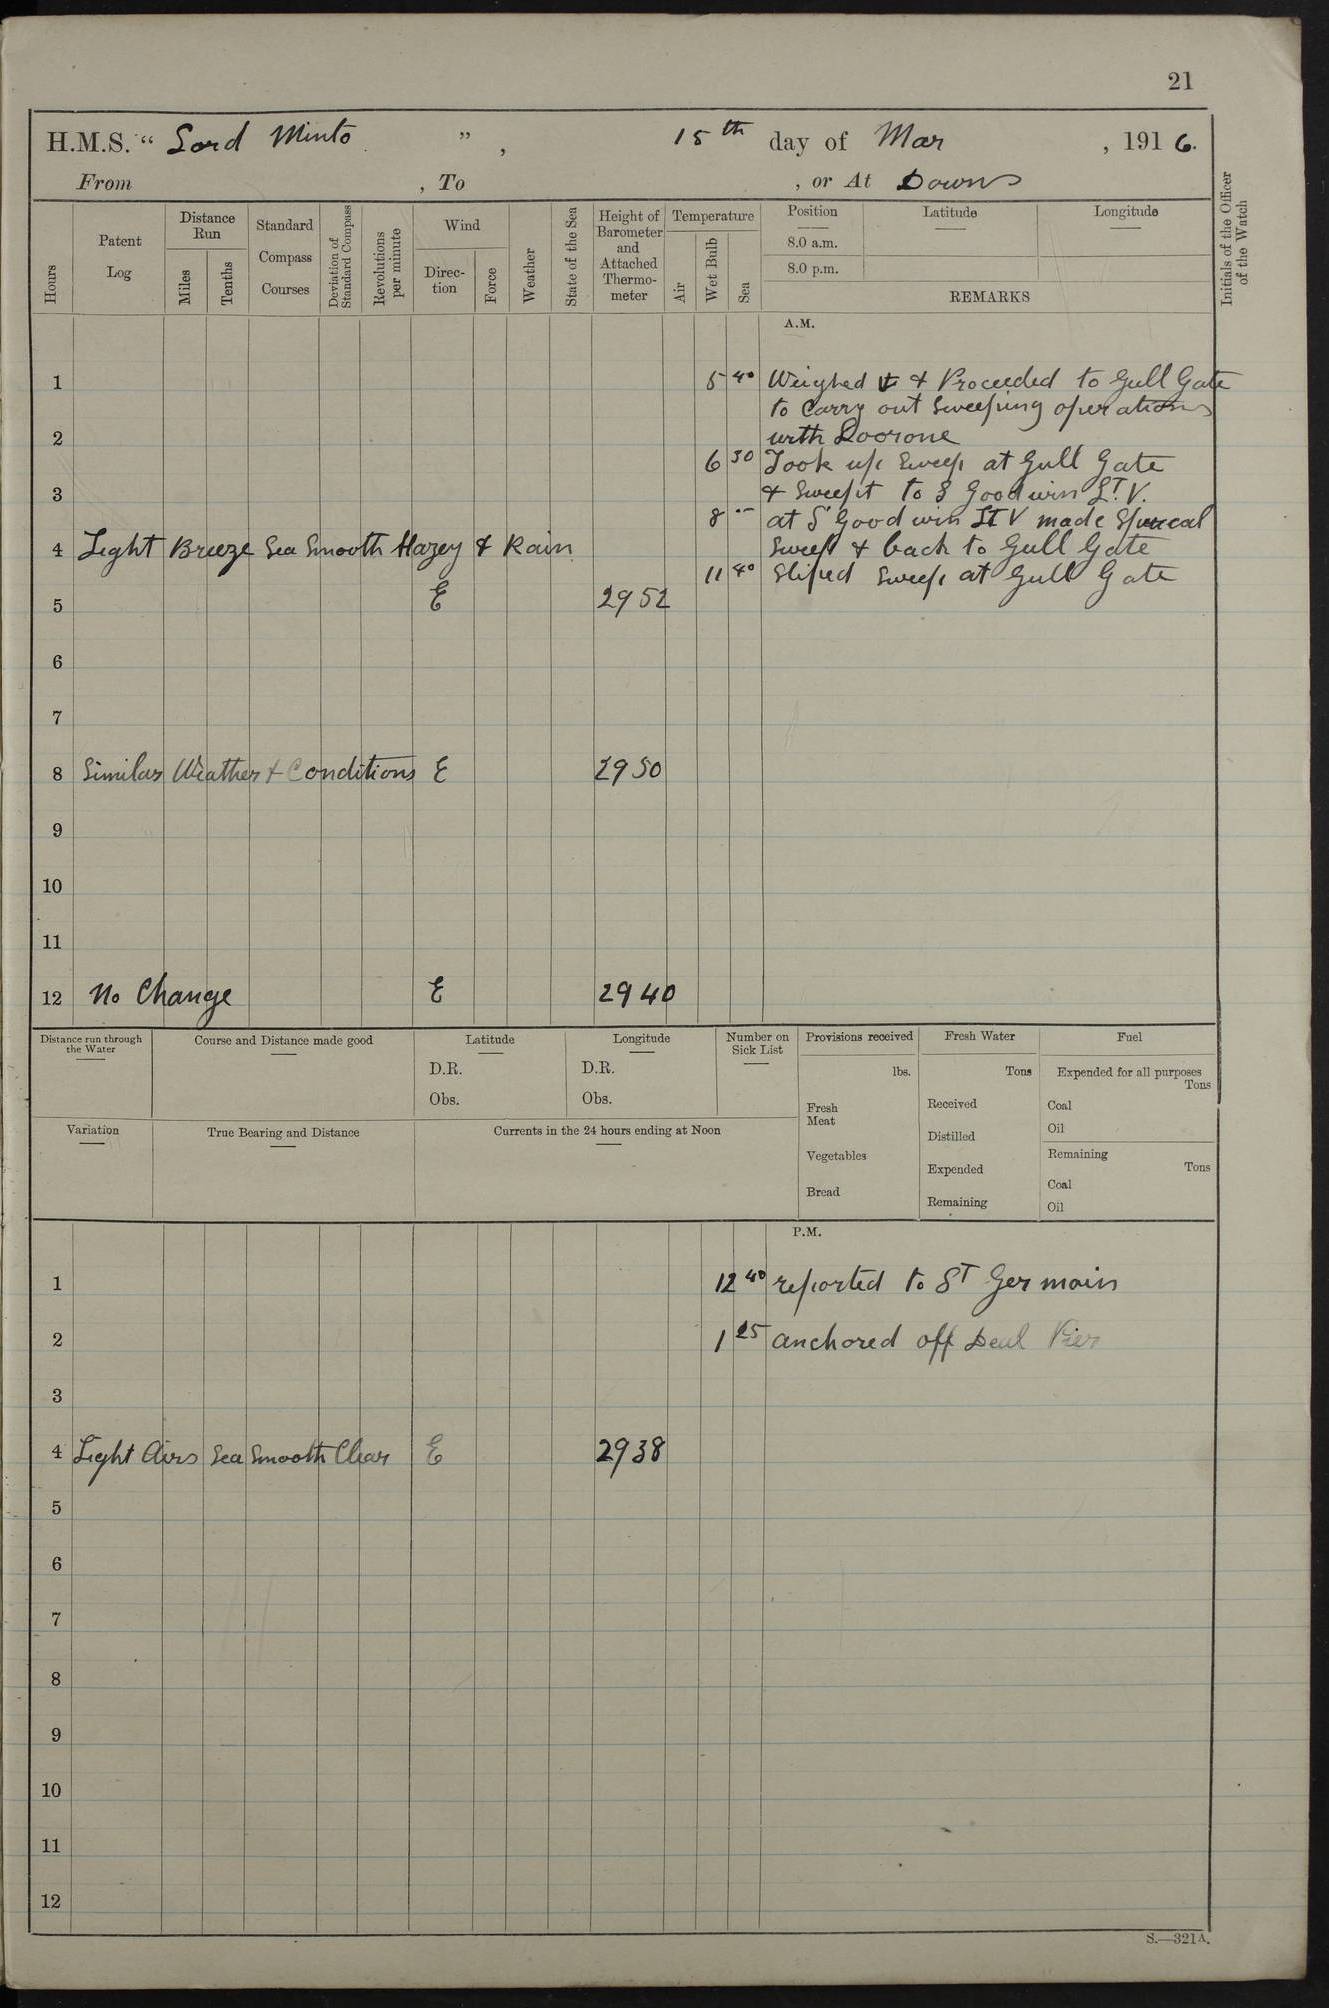 21
H.M.S. “ Lord Minto ”, 15th day of Mar , 1916.
From , To , or At Downs
Hours
Patent Log
Distance Run
Miles
Tenths
Standard Compass Courses
Deviation of Standard Compass
Revolutions per minute
Wind
Direction
Force
Weather
State of the Sea
Height of Barometer and Attached Thermometer
Temperature
Air
Wet Bulb
Sea
Position
8.0 a.m.
8.0 p.m.
Latitude
Longitude
REMARKS
Initials of the Officer of the Watch
A.M.
1 5 40 Weighed & Proceeded to Gull Gate
to Carry out Sweeping operations
2 with Doorone
6 30 Took up Sweep at Gull Gate
3 & Sweept to S Goodwin LT. V.
8 -- at S Goodwin LT V made
4 Light Breeze Sea Smooth Hazey & Rain Sweep & back to Gull Gate
11 40 Sliped Sweep at Gull Gate
5 E 29 52
6
7
8 Similar Weather & Conditions E 29 50
9
10
11
12 No Change E 29 40
Distance run through the Water
Course and Distance made good
Latitude
D.R.
Obs.
Longitude
D.R.
Obs.
Number on Sick List
Provisions received
lbs.
Fresh Meat
Vegetables
Bread
Fresh Water
Tons
Received
Distilled
Expended
Remaining
Fuel
Expended for all purposes
Tons
Coal
Oil
Remaining
Tons
Coal
Oil
Variation
True Bearing and Distance
Currents in the 24 hours ending at Noon
P.M.
1 12 40 reported to ST Germain
2 1 25 anchored off Deal Pier
3
4 Light Airs Sea Smooth Clear E 29 38
5
6
7
8
9
10
11
12
S.—321A.